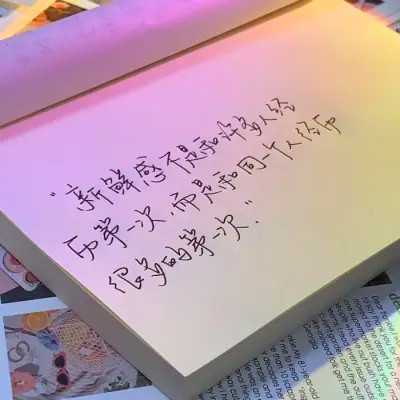 "新鲜感不是和许多人经
历第一次,而是和同一个人经历
很多的第一次."
Georgia